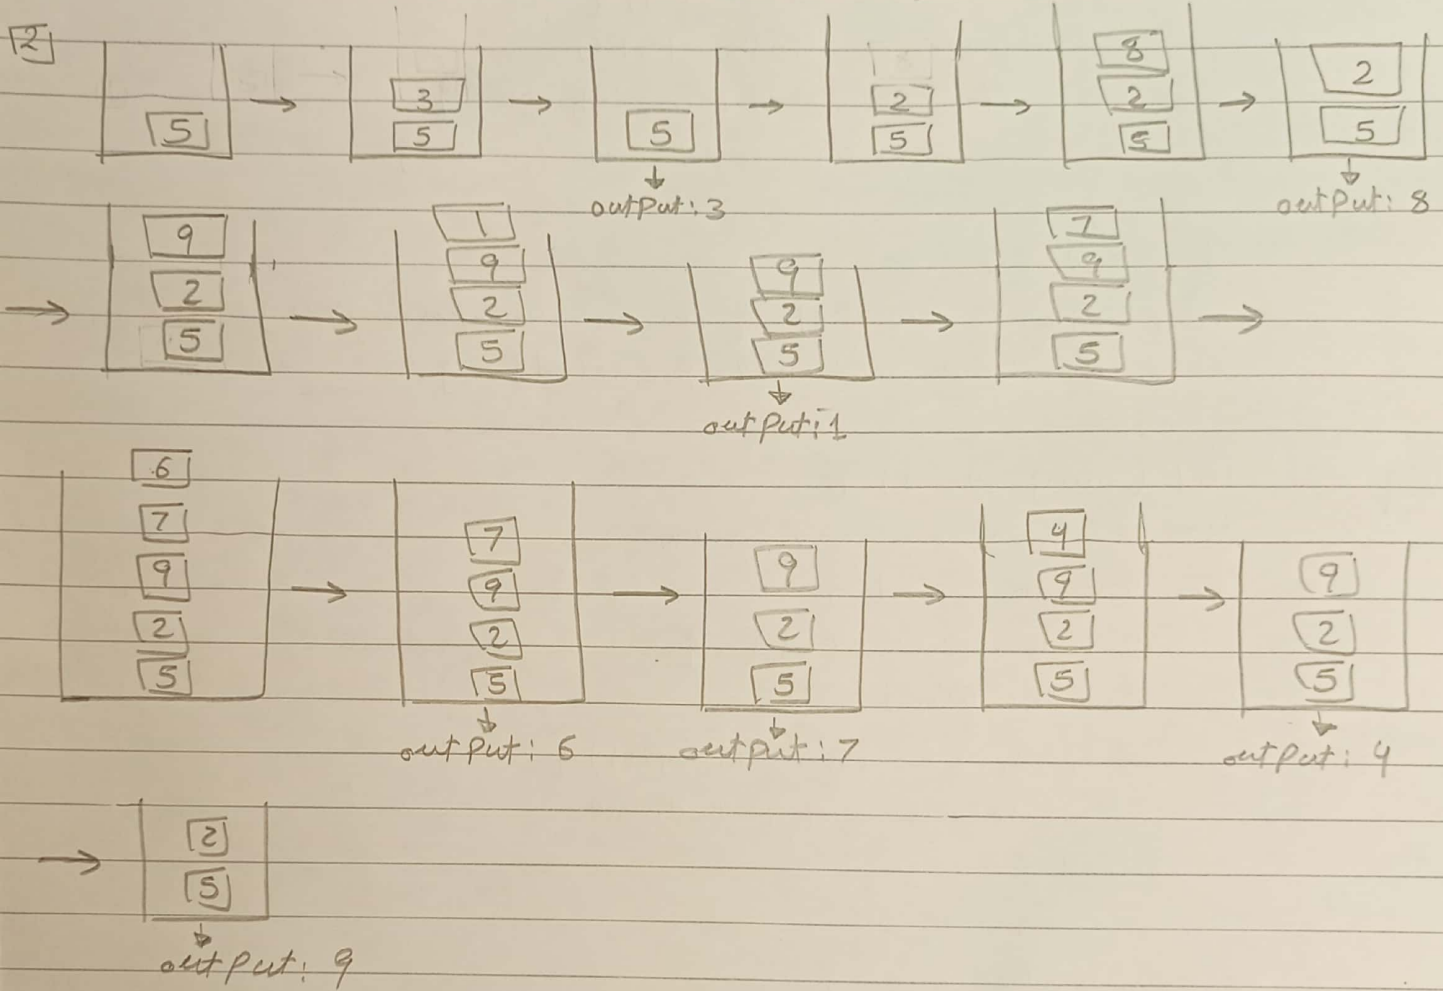 2
5 → 3 5 → 5 → 2 5 → 8 2 5 → 2 5
output: 3 output: 8
→ 9 2 5 → 1 9 2 5 → 9 2 5 → 7 9 2 5 →
output: 1
6 7 9 2 5 → 7 9 2 5 → 9 2 5 → 4 9 2 5 → 9 2 5
output: 6 output: 7 output: 4
→ 2 5
output: 9